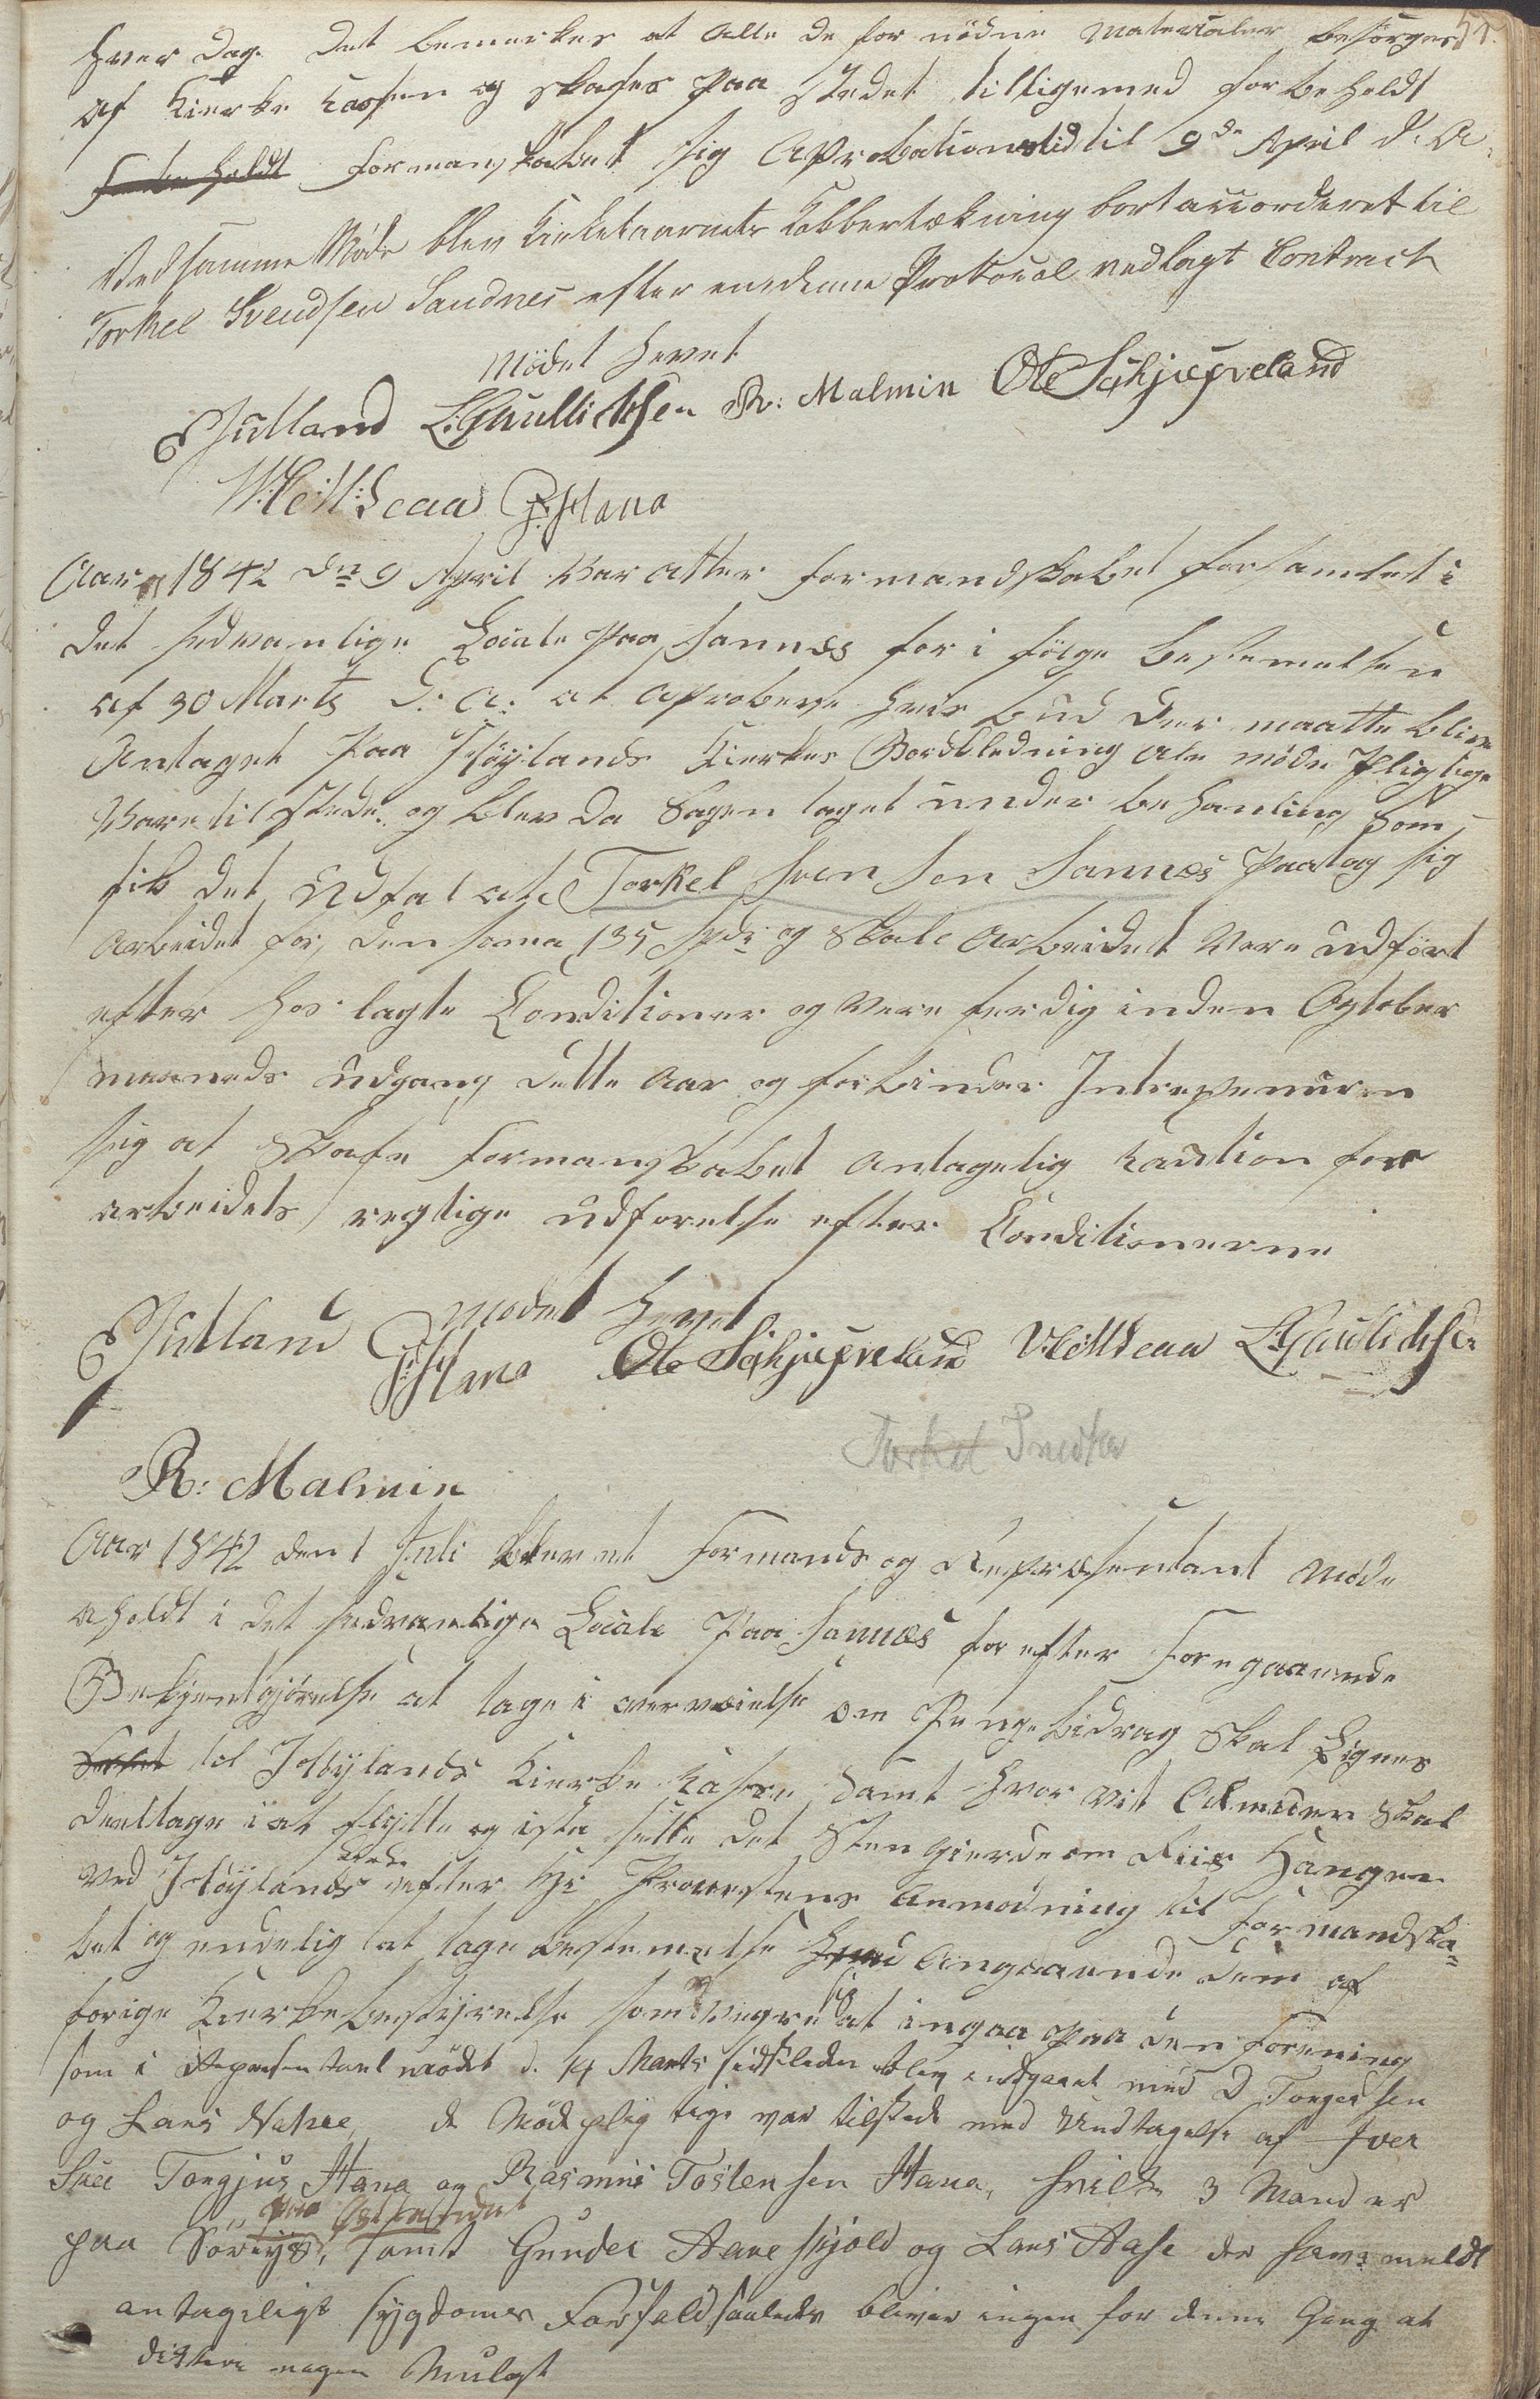 51.
hver Dag. Det bemerkes at alle de for nödne Materialer besörges
af Kierke Kassen og skafes paa Stedet tilligemed forbeholdt
forbeholdt Formanskabet sig Aprobationstid til 9de April d. A.
Ved samme Møde blev Kirketaarnets Kobbertækning bortaccorderet til
Torkel Svendsen Sandnes efter en denne Protocol vedlagt Contract
Mödet hevet
E Jutland L. Gaullichsen R: Malmin Ole Schjæpveland
Hana
Aar 1842 dn 9 April var atter formandskabet forsamlet i
det sedvanlige Locale paa Sannes for i fölge bestemelsen
af 30 Marts d: A: at aprobere hvis bud der maatte blive
Antaget paa Höylands Kierkes Bordkledning ale møde pligtige
vare tilstede og blev da Sagen taget under behanling som
fik det Udfal at Torkel Svensen Sannes paatog sig
Arbeidet for den soma 135 Spd og skale Arbeidet vere udfört
efter hos lagte Conditioner og vere ferdig inden Ogtober
maaneds udgang dette Aar og forbinder Intrepenuren
sig at skafe Formanskabet antagelig Kaution for
arbeidets regtige udforelse efter Conditionerne
modet hevet
E Jutland Hana Ole Schjæpveland L. Gaullichsen
Torkel
R: Malmin
Aar 1842 den 1 Juli blev et Formands og Repræsentant møde
aholdt i det sedvanlige Locale paa Sannes for efter Foregaaende
Bekjentgjörelse at tage i overveielse om Pengebidrag skal Lignes
til Höylands Kierke Kasse samt hvor vit Almuen skal
deeltage i at flytte og ista sette det Sten gierde om
ved Höylands efter Hr Provstens Anmodning til Formandska=
bet og endelig at tage bestemelse angaaende dem af
forige Kierkebestyrelse som vegre sig at ingaa paa den Forening
som i Repræsentant mödet d. 14 Marts sidstleden blev indgaaet med D. Torgersen
og Lars de Mödepligtige var tilstede med Undtagelse af Iver
Torgius Hana og Rasmus Tostensen Hana, hvilke 3 Mand er
„paa Östlandet
paa Söreys, samt Gunder Aareskjold og Lars Aase der have meldt
antageligt sygdomes Forfald saaledes bliver ingen for denne Gang at
dictere nogen Mulgt